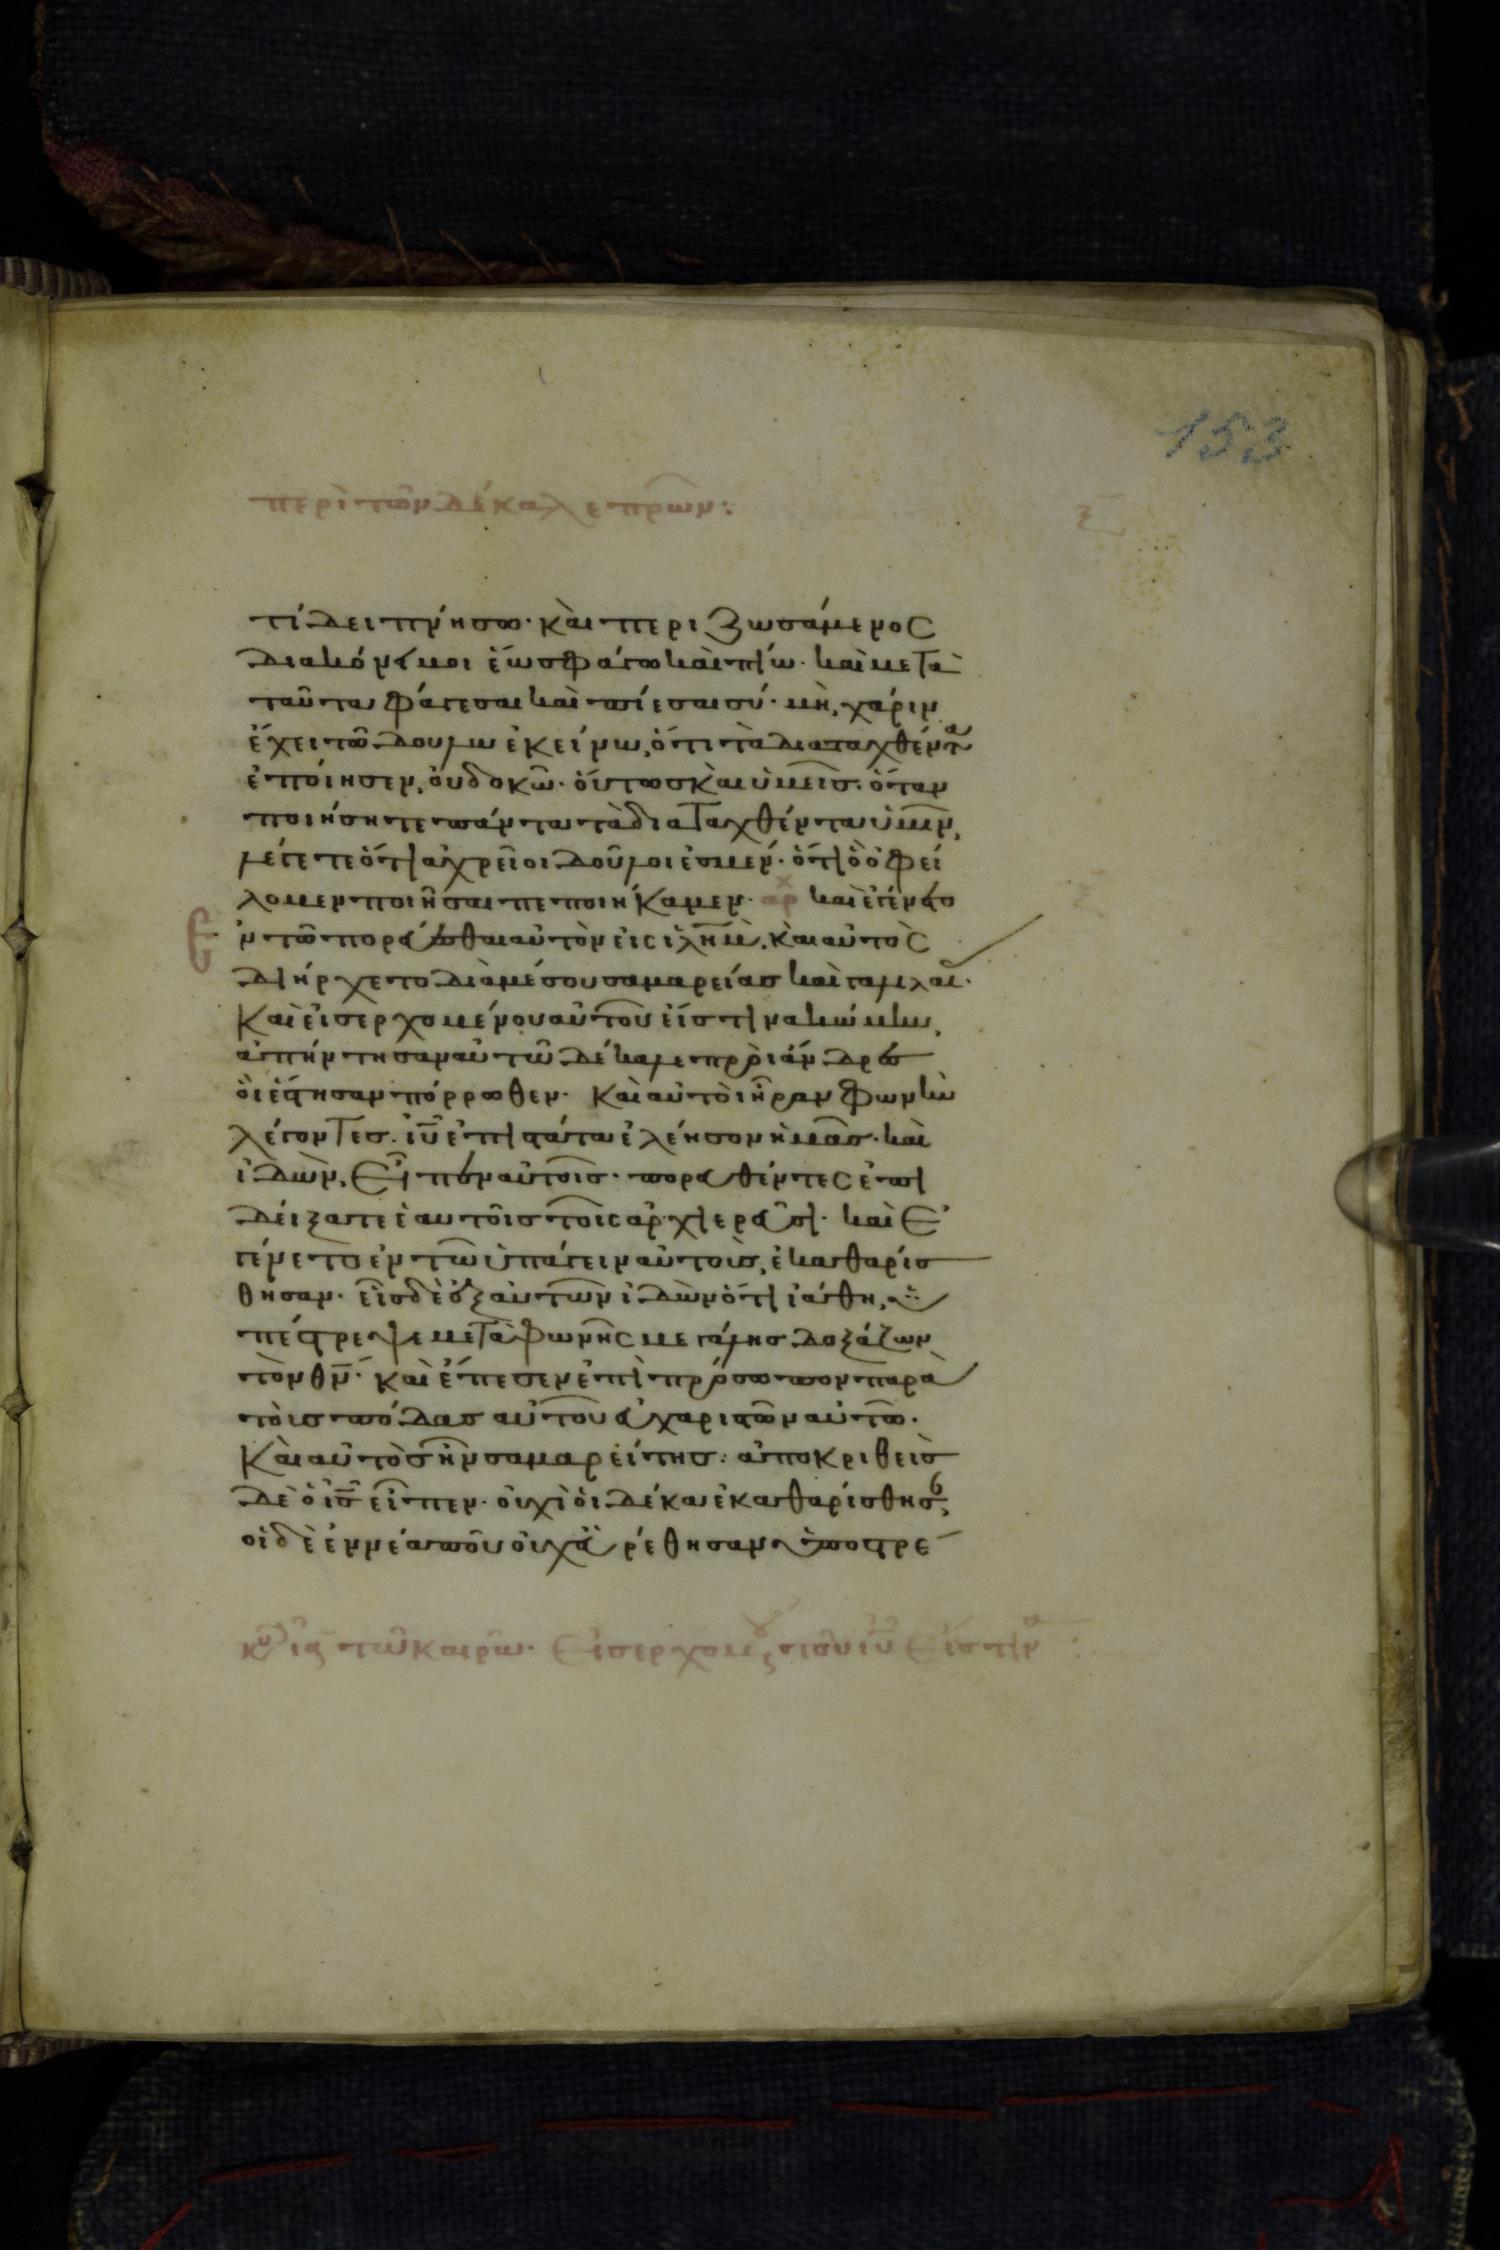 153
περὶ τῶν δέκα λεπρῶν:
ξ
τί δειπνήσω· καὶ περιζωσάμενος
διακόνει μοι ἕως φάγω καὶ πίω· καὶ μετὰ
ταῦτα φάγεσαι καὶ πίεσαι σύ· μὴ, χάριν
ἔχει τῶ δούλω ἐκείνω, ὅτι τὰ διαταχθέντα
ἐποίησεν, οὐ δοκῶ· οὕτως καὶ ὑμεῖς· ὅταν
ποιήσητε πάντα τὰ διαταχθέντα ὑμῖν,
λέγετε ὅτι ἀχρεῖοι δοῦλοι ἐσμέν· ὅτι ὃ ὀφεί
λομεν ποιῆσαι πεποιήκαμεν· αρχ καὶ ἐγένετο
ἐν τῶ πορεύεσθαι αὐτὸν εἰς ἱλῆμ, καὶ αὐτὸς
διήρχετο διὰ μέσου σαμαρείας καὶ γαλιλαί·
Καὶ εἰσερχομένου αὐτοῦ εἴς τινα κώμην,
ἀπήντησαν αὐτῶ δέκα λεπροὶ ἄνδρες
οἳ ἔστησαν πόρρωθεν· Καὶ αὐτοὶ ἦραν φωνὴν
λέγοντες· ἰῦ ἐπιστάτα ἐλέησον ἡμᾶς· καὶ
ἰδὼν, εἶπεν αὐτοῖς· πορευθέντες ἐπι
δείξατε ἑαυτοῖς τοῖς ἀρχιερεῦσι· καὶ ἐ
γένετο ἐν τῶ ὑπάγειν αὐτοὺς, ἐκαθαρίσ
θησαν· εἷς δὲ ἐξ αὐτῶν ἰδὼν ὅτι ἰάθη, ὑ
πέστρεψε μετὰ φωνῆς μεγάλης δοξάζων
τὸν θν· καὶ ἔπεσεν ἐπὶ πρόσωπον παρὰ
τοὺς πόδας αὐτοῦ εὐχαριστῶν αὐτῶ·
Καὶ αὐτὸς ἦν σαμαρείτης· ἀποκριθεὶς
δὲ ὁ ις εἶπεν· οὐχὶ οἱ δέκα ἐκαθαρίσθησ,
οἱ δὲ ἐννέα ποῦ οὐχ εὑρέθησαν ὑποστρε
τῶ καιρῶ· εἰσερχομ τοῦ ἰῦ εἴς τιν